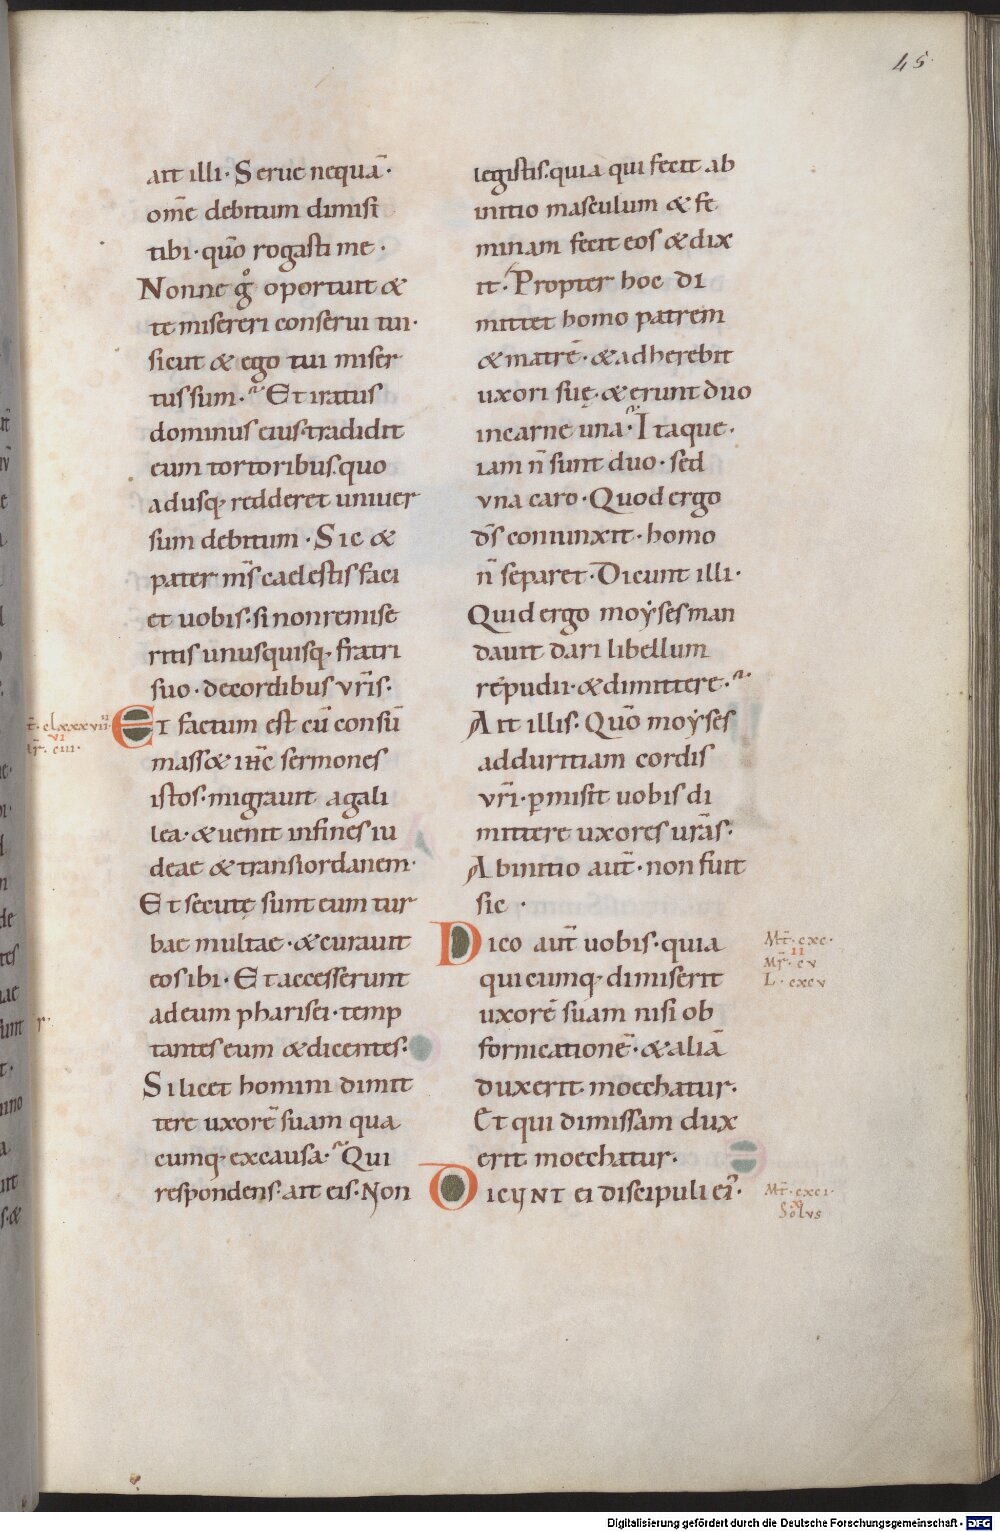 45
ait illi· Serue nequā·
om̄e debitum dimisi
tibi· quō rogasti me·
Nonne g̊ oportuit &
te misereri conserui tui·
sicut & ego tui miser
tus sum· Et iratus
dominus eius tradidit
eum tortoribus· quo
adusq; redderet uniuer
sum debitum· Sic &
pater m̄s caelestis faci
et uobis· si non remise
ritis unusquisq; fratri
suo· decordibus vr̄is·
Et factum est cū consū
mass& ih̄c sermones
istos· migrauit agali
lea· & uenit infines iu
deae & transiordanem·
Et secutę sunt eum tur
bae multae· & curauit
eos ibi· Et accesserunt
ad eum pharisei· temp
tantes eum & dicentes·
Si licet homini dimit
tere uxorē suam qua
cumq; ex causa· Qui
respondens· ait eis· Non
legistis· quia qui fecit ab
initio masculum & fe
minam fecit eos & dix
it· Propter hoc di
mittet homo patrem
& matrē· & adherebit
uxori suę· & erunt duo
in carne una· Itaque·
iam n̄ sunt duo· sed
vna caro· Quod ergo
ds̄ coniunxit· homo
n̄ separet· Dicunt illi·
Quid ergo moẏses man
dauit dari libellum
repudii· & dimittere·
Ait illis· Quō moẏses
adduritiam cordis
vr̄i· pmisit uobis di
mittere uxores urās·
Abinitio aut̄· non fuit
sic·
Dico aut̄ uobis· quia
quicumq; dimiserit
uxorē suam nisi ob
fornicationē· & aliā
duxerit· moechatur·
Et qui dimissam dux
erit moechatur·
Dicunt ei discipuli ei'·
clxxxvii·
vi
ciii·
Mt̄· cxc·
ii
Mr̄· cv
L· cxcv
Mt̄· cxci·
x
Solvs
Digitalisierung gefördert durch die Deutsche Forschungsgemeinschaft - DFG